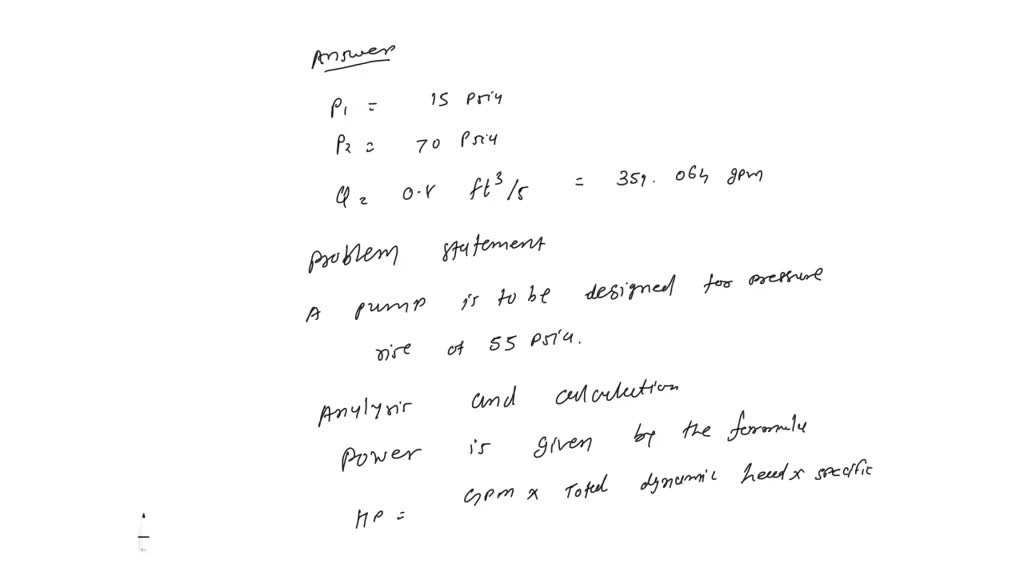 Answer
P1 = 15 Psia
P2 = 70 Psia
Q = 0.8 ft³/s = 359.064 gpm
problem statement
A pump is to be designed for pressure
rise of 55 Psia.
Analysis and calculation
Power is given by the formula
HP = GPM x Total dynamic head x specific